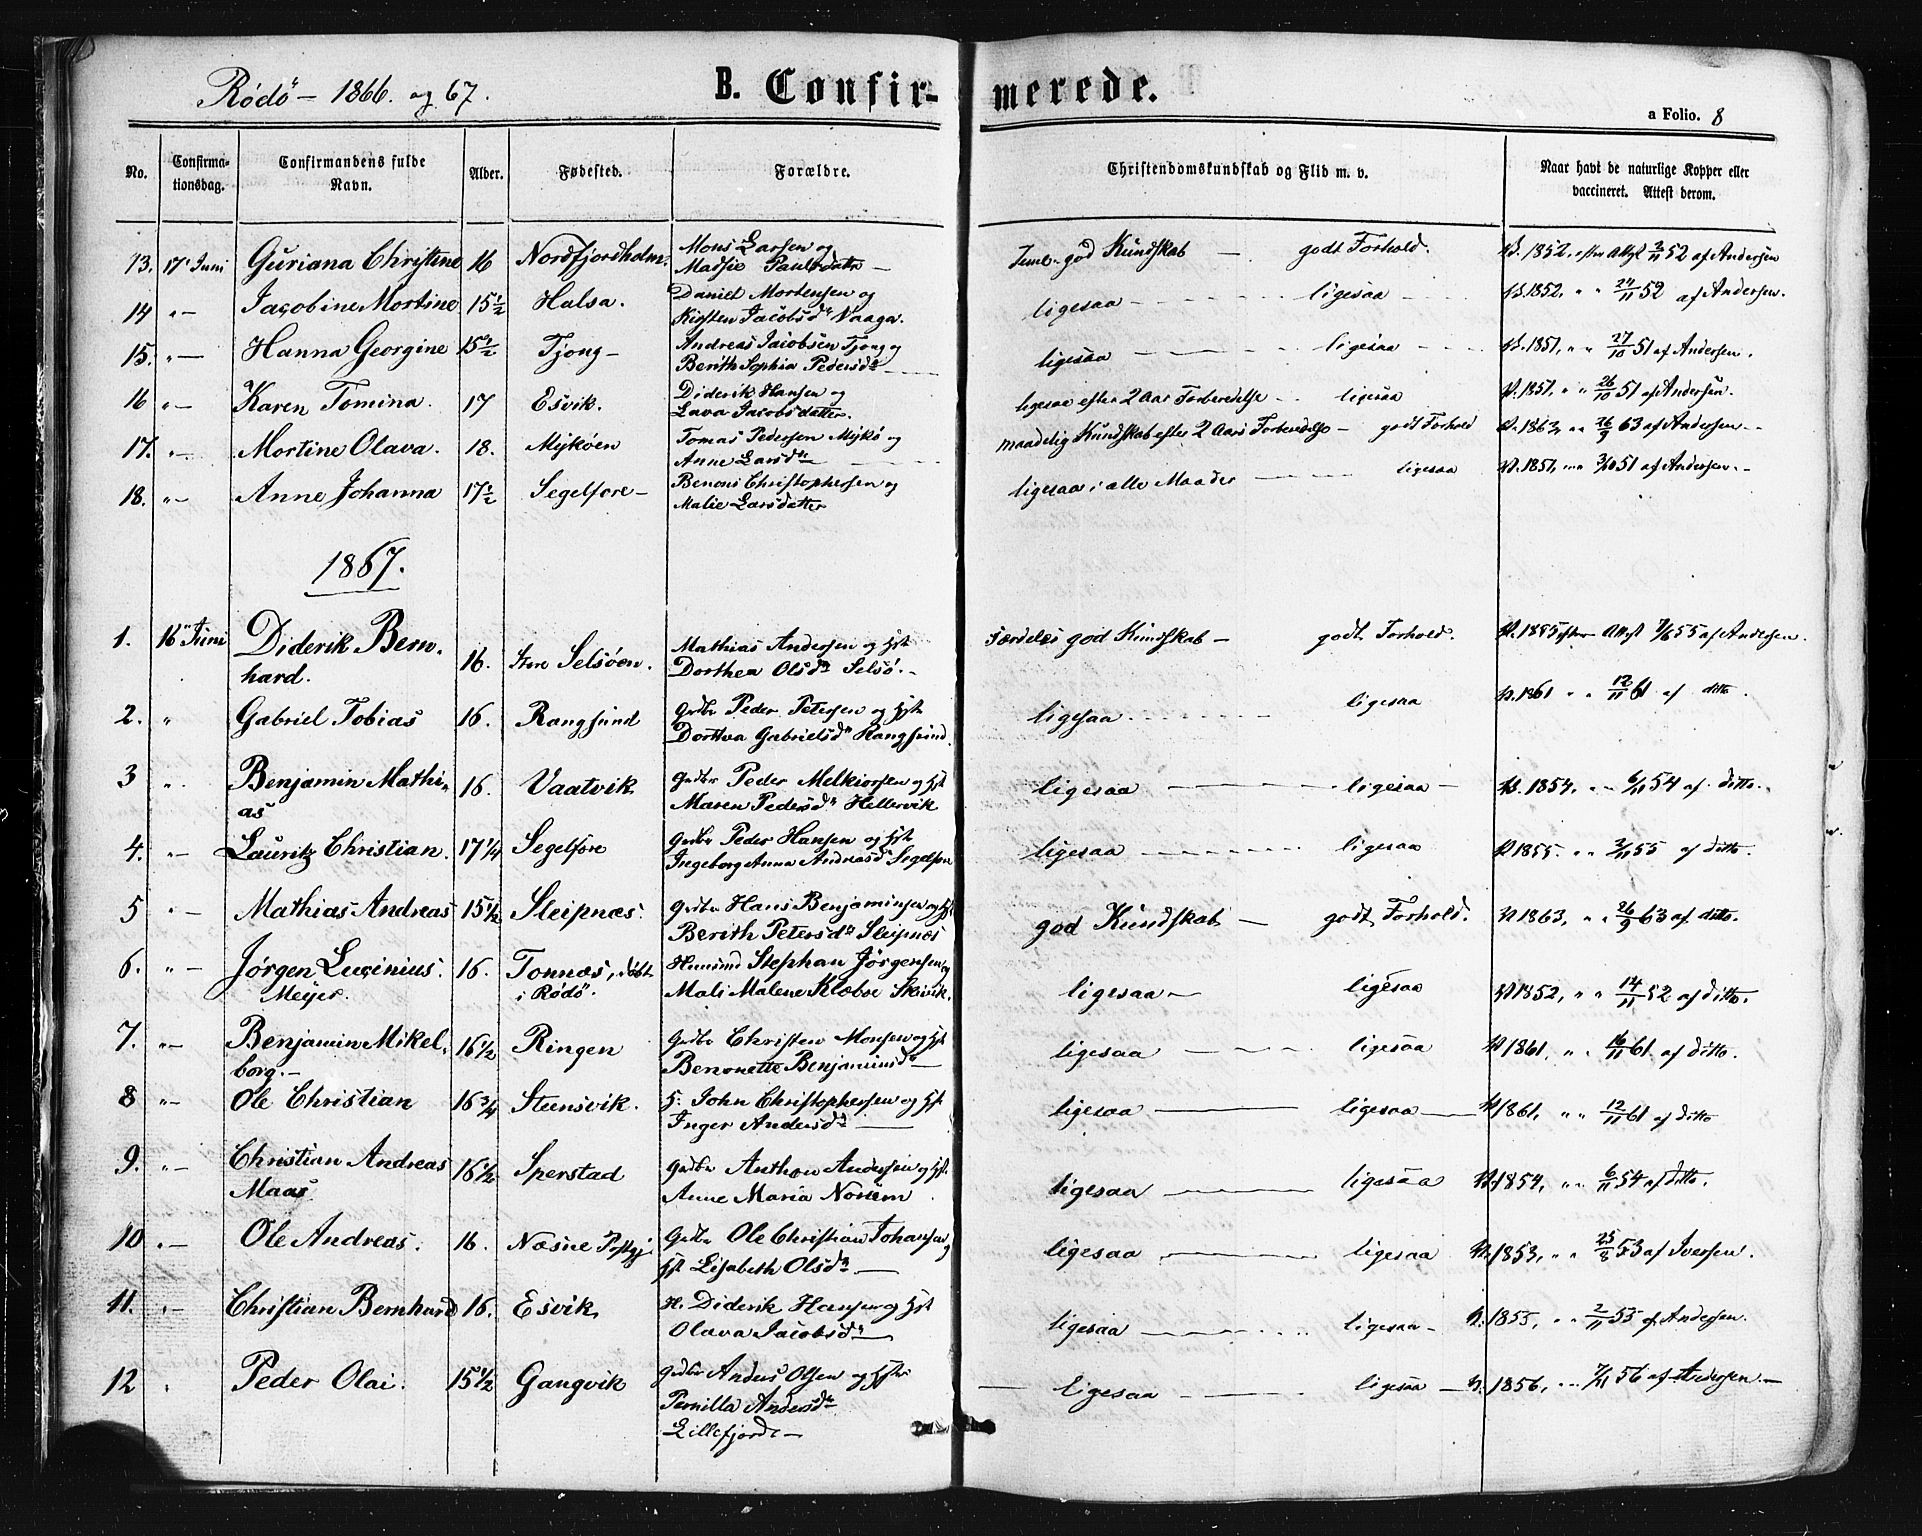 Rödö - 1866. og 67.
B. Confirmerede.
a Folio. 8
No. Confirmationsdag. Confirmandens fulde Navn. Alder. Fødested. Forældre. Christendomskundskab og Flid m. v. Naar havt de naturlige Kopper eller vaccineret. Attest derom.
13. 17' Juni Guriana Christine 16 Nordfjordholm. Mons Larsen og Madsie Paulsdatr — god Kundskab — godt Forhold. V. 1852, efter Attest 2/11 52 af Andersen
14 "— Jacobine Mortine 15½ Halsa. Daniel Mortensen og Kirsten Jacobsdr Naaga. ligesaa — ligesaa V. 1852, " " 24/11 52 af Andersen.
15. "— Hanna Georgine 15½ Tjong — Andreas Jacobsen Tjong og Berith Sophia Pedersdr ligesaa — ligesaa V. 1851, " " 27/10 51 af Andersen.
16 "— Karen Tomina. 17 Esvik. Diderik Hansen og Lava Jacobsdatter. ligesaa efter 2 Aars Forberedelse — ligesaa V. 1851, " " 26/10 51 af Andersen.
17. "— Mortine Olava. 18. Mykøen Tomas Pedersen Mykø og Anne Larsdr maadelig Kundskab efter 2 Aars Forberedelse — godt Forhold V. 1863, " " 26/9 63 af Andersen —
18. "— Anne Johanna 17½ Segelfore — Benoni Christophersen og Malie Larsdatter ligesaa i alle Maader — ligesaa V. 1851, " " 3/10 51 af Andersen. —
1867.
1. 16" Juni Diderik Bernhard. 16. Store Selsöen. Mathias Andersen og Hst Dorthea Olsdr Selsö. — særdeles god Kundskab — godt Forhold. V. 1855 efter Attest 7/6 55 af Andersen.
2. " Gabriel Tobias 16. Rangsund Gaardbr Peder Petersen og Hst Dorthea Gabrielsdr Rangsund. ligesaa — ligesaa V. 1861 " " 12/11 61 af ditto.
3 ". Benjamin Mathias 16. Vaatvik Gaardbr Peder Melkiorsen og Hst Maren Pedersdr Hellervik ligesaa — ligesaa — V. 1854, " — 6/11 54 af ditto.
4. "— Lauritz Christian. 17¼ Segelfore Gaardbr Peder Hansen og Hst Ingeborg Anna Andreasdr Segelfore ligesaa — ligesaa V 1855. " " 3/11 55 af ditto.
5 "— Mathias Andreas 15½ Sleipnæs. Gaardbr Hans Benjaminsen og Hst Berith Petersdr Sleipnæs god Kundskab — godt Forhold. V 1863, " " 26/9 63 af ditto.
6. "— Jørgen Lucinius Meyer. 16. Tonnæs, døbt i Rödö. Huusmd Stephan Jørgensen og Mali Malene Klæboe Skivik. ligesaa — ligesaa V 1852, " " 14/11 52 af ditto.
7. "— Benjamin Mikelborg. — 16½ Ringen Gaardbr Christen Monsen og Hst Benonette Benjaminsdr — ligesaa — ligesaa V 1861, " " 16/11 61. af ditto.
8 "— Ole Christian 16¾ Stensvik. G. John Christophersen og Hst Inger Andersdr — ligesaa — ligesaa — V 1861, " " 12/11 61 af ditto
9. "— Christian Andreas Maas 16½ Sperstad Gaardbr Anthon Andersen og Hst. Anne Maria Norum ligesaa — ligesaa V. 1854, " " 6/11 54 af ditto.
10 "— Ole Andreas. 16. Næsne Prstgj. Gaardbr Ole Christian Johansen og Hst Elisabeth Olsdr — ligesaa — ligesaa V. 1853, " " 25/8 53 af Iversen.
11. "— Christian Bernhard 16. Esvik H. Diderik Hansen og Hst Olava Jacobsdr — ligesaa — ligesaa — V. 1855, " " 2/11 55 af Andersen.
12 " Peder Olai. 15½ Gangvik Gaardbr Anders Olsen og Hstr Pernilla Andersdr Lillefjord. — ligesaa — ligesaa — V. 1856, — 7/11 56 af Andersen. —